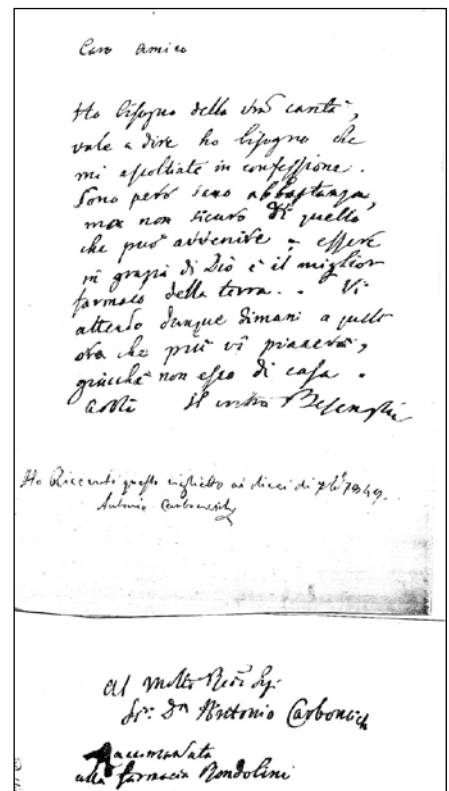 Caro Amico
Ho bisogno della vrã carità,
vale a dire ho bisogno che
mi ascoltiate in confessione.
Sono però sano abbastanza,
ma non sicuro di quello
che può avvenire, essere
in grazia di Dio è il miglior
farmaco della terra. Vi
attendo dunque dimani a quell'
ora che più vi piacerà,
giacchè non esco di casa.
Addio Il vostro Besenghi
Ho Ricevuto questo viglietto ai dieci di 7bre 1849.
Antonio Carboncich
Al Molto Revdo Sigr
Dn Antonio Carboncich
Raccomandata
alla farmacia Rondolini